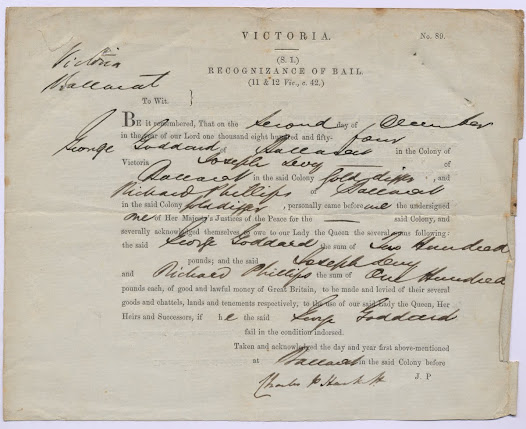 VICTORIA.
No. 89.
(S. 1.)
RECOGNIZANCE OF BAIL.
(11 & 12 Vic., c. 42.)
Victoria
Ballarat
To Wit. }
BE it remembered, That on the Second day of December
in the year of our Lord one thousand eight hundred and fifty-four
George Goddard of Ballarat in the Colony of
Victoria Joseph Levy of
Ballarat in the said Colony Gold digger, and
Richard Phillips of Ballarat
in the said Colony Gold digger, personally came before me the undersigned
one of Her Majesty's Justices of the Peace for the said Colony, and
severally acknowledged themselves to owe to our Lady the Queen the several sums following:
the said George Goddard the sum of Two Hundred
pounds; and the said Joseph Levy
and Richard Phillips the sum of One Hundred
pounds each, of good and lawful money of Great Britain, to be made and levied of their several
goods and chattels, lands and tenements respectively, to the use of our said Lady the Queen, Her
Heirs and Successors, if he the said George Goddard
fail in the condition indorsed.
Taken and acknowledged the day and year first above-mentioned
at Ballarat in the said Colony before
Charles P. J. P